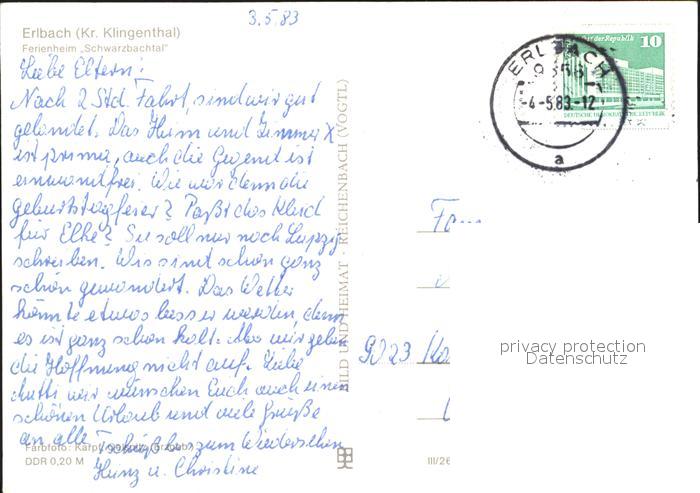 3.5.83
Erlbach (Kr. Klingenthal)
Ferienheim „Schwarzbachtal"
Liebe Eltern!
Nach 2 Std. Fahrt, sind wir gut
gelandet. Das Heim und Zimmer
ist prima, auch die Gegend ist
einwandfrei. Wie war denn die
Geburtstagfeier? Paßt das Kleid
für Elke? Sie soll nur nach Leipzig
schreiben. Wir sind schon ganz
schön gewandert. Das Wetter
könnte etwas besser werden, denn
es ist ganz schön kalt. Aber wir geben
die Hoffnung nicht auf. Liebe
Mutti wir wünschen Euch auch einen
schönen Urlaub und viele Grüße
an alle. Tschüß bis zum Wiedersehen
Heinz u. Christine
Farbfoto: Karpf
DDR 0,20 M
BILD UND HEIMAT · REICHENBACH (VOGTL)
III/26
ERLBACH
9656
-4.-5.83.-12
a
der Republik 10
DEUTSCHE DEMOKRATISCHE REPUBLIK
Fa
9023 Ka
privacy protection
Datenschutz